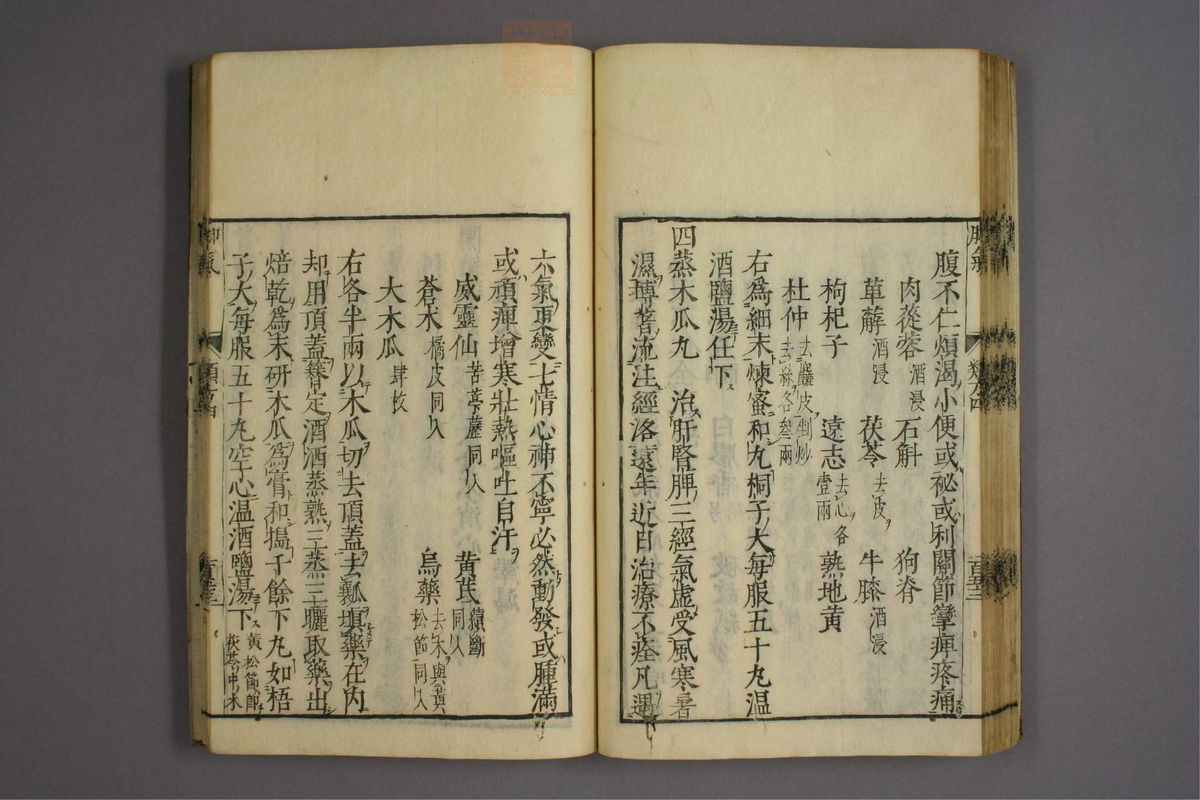 腹不仁煩渴小便或祕或利關節攣痺疼痛
肉蓯蓉酒浸 石斛 狗脊
萆薢酒浸 茯苓去皮 牛膝酒浸
枸杞子 遠志去心各壹兩 熟地黄
杜仲去麤皮剉炒去絲各叁兩
右爲細末煉蜜和丸桐子大每服五十丸温
酒鹽湯任下
四蒸木瓜丸 治肝腎脾三經氣虛受風寒暑
濕搏著流注經洛遠年近日治療不痊凡遇
六氣更變七情心神不寧必然動發或腫滿
或頑痺增寒壯熱嘔吐自汗
威靈仙苦葶藶同入 黄芪續斷同入
蒼朮橘皮同入 烏藥去木與黄松節同入
大木瓜肆枚
右各半兩以木瓜切去頂蓋去瓤填藥在内
却用頂蓋簪定酒洒蒸熟三蒸三曬取藥出
焙乾爲末研木瓜爲膏和搗千餘下丸如梧
子大每服五十丸空心温酒鹽湯下黄松節即茯苓中木